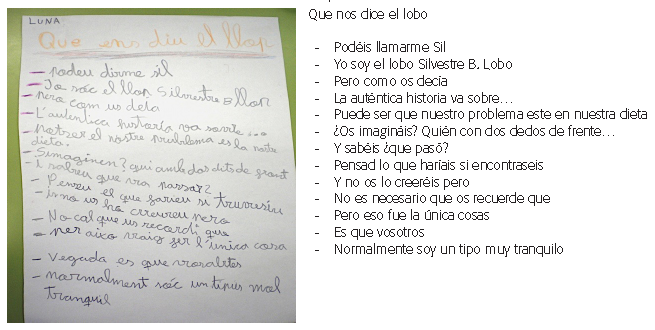 LUNA
Que ens diu el llop
- podeu dirme sil
- Jo sóc el llop Silvestre B llop
- pero com us deia
- L'autèntica història va
- potser el nostre problema es la nostre
dieta.
- Simaginen? qui amb dos dits de front
- I sabreu que va passar?
- Penseu el que farieu si
- i no us ho creureu pero
- No cal que us recordi que
- per aixo vaig ser l'unica cosa
- vegada es que vosaltres
- normalment sóc un tipus mol
tranquil
Que nos dice el lobo
- Podéis llamarme Sil
- Yo soy el lobo Silvestre B. Lobo
- Pero como os decía
- La auténtica historia va sobre…
- Puede ser que nuestro problema este en nuestra dieta
- ¿Os imagináis? Quién con dos dedos de frente…
- Y sabéis ¿que pasó?
- Pensad lo que haríais si encontraseis
- Y no os lo creeréis pero
- No es necesario que os recuerde que
- Pero eso fue la única cosas
- Es que vosotros
- Normalmente soy un tipo muy tranquilo